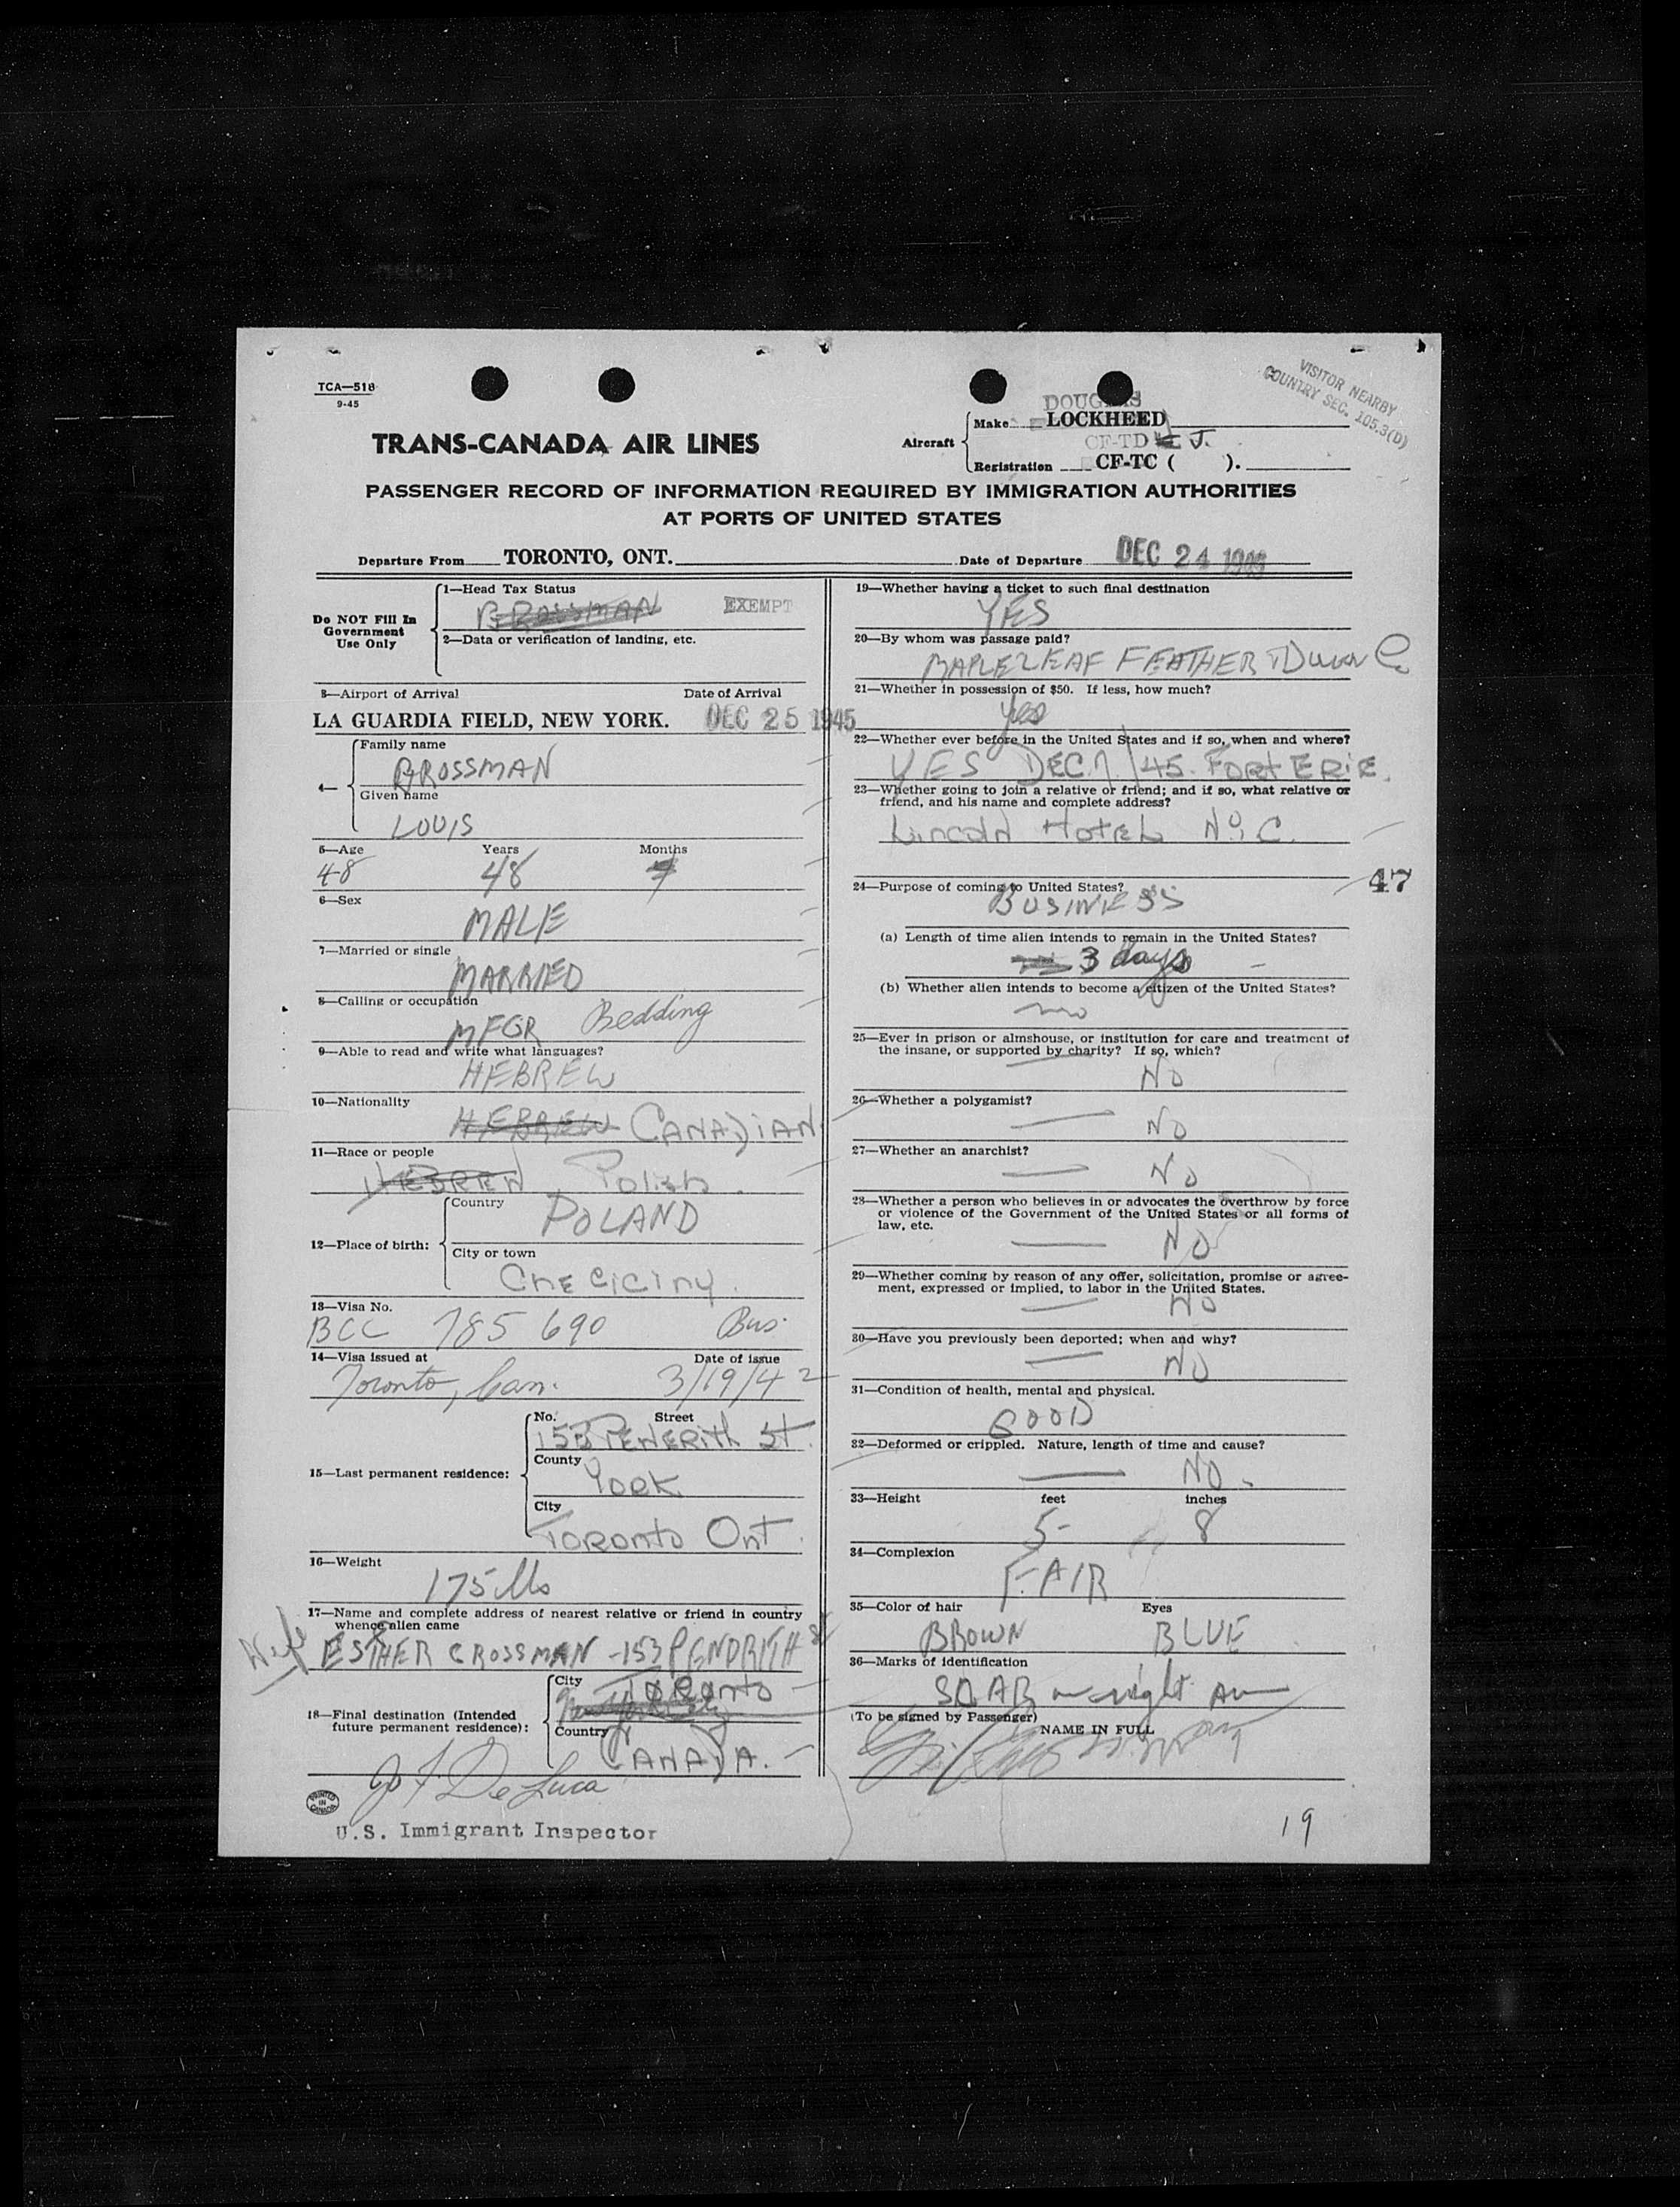 TCA—518
9-45
VISITOR NEARBY
COUNTRY SEC. 105.3(D)
TRANS-CANADA AIR LINES
Aircraft
DOUGLAS
Make LOCKHEED
CF-TD J.
Registration CF-TC ( ).
PASSENGER RECORD OF INFORMATION REQUIRED BY IMMIGRATION AUTHORITIES
AT PORTS OF UNITED STATES
Departure From TORONTO, ONT. Date of Departure DEC 24 1945
Do NOT Fill In
Government
Use Only
1—Head Tax Status
GROSSMAN EXEMPT
2—Data or verification of landing, etc.
3—Airport of Arrival Date of Arrival
LA GUARDIA FIELD, NEW YORK. DEC 25 1945
4—
Family name
GROSSMAN
Given name
LOUIS
5—Age Years Months
48 48
6—Sex
MALE
7—Married or single
MARRIED
8—Calling or occupation
MFGR Bedding
9—Able to read and write what languages?
HEBREW
10—Nationality
HEBREW CANADIAN
11—Race or people
HEBREW Polish.
12—Place of birth:
Country
POLAND
City or town
Checiciny.
13—Visa No.
BCC 785 690 Bus.
14—Visa issued at Date of issue
Toronto, Can. 3/19/42
15—Last permanent residence:
No. Street
153 PENERITH ST.
County
YORK
City
TORONTO Ont.
16—Weight
175 lbs
17—Name and complete address of nearest relative or friend in country
whence alien came
Wife ESTHER GROSSMAN -153 PENDRITH St
18—Final destination (Intended
future permanent residence):
City
Toronto
New York City
Country
CANADA.
U.S. Immigrant Inspector
PRINTED
IN
CANADA
J. De Luca
19—Whether having a ticket to such final destination
YES
20—By whom was passage paid?
MAPLELEAF FEATHER & Down Co
21—Whether in possession of $50. If less, how much?
yes
22—Whether ever before in the United States and if so, when and where?
YES DEC 7/45. FORT ERIE.
23—Whether going to join a relative or friend; and if so, what relative or
friend, and his name and complete address?
Lincoln HOTEL N.Y.C.
47
24—Purpose of coming to United States?
BUSINESS
(a) Length of time alien intends to remain in the United States?
3 days
(b) Whether alien intends to become a citizen of the United States?
no
25—Ever in prison or almshouse, or institution for care and treatment of
the insane, or supported by charity? If so, which?
NO
26—Whether a polygamist?
NO
27—Whether an anarchist?
NO
28—Whether a person who believes in or advocates the overthrow by force
or violence of the Government of the United States or all forms of
law, etc.
NO
29—Whether coming by reason of any offer, solicitation, promise or agree-
ment, expressed or implied, to labor in the United States.
NO
30—Have you previously been deported; when and why?
NO
31—Condition of health, mental and physical.
GOOD
32—Deformed or crippled. Nature, length of time and cause?
NO.
33—Height feet inches
5- 8
34—Complexion
FAIR
35—Color of hair Eyes
BROWN BLUE
36—Marks of identification
SCAR on right Arm
(To be signed by Passenger)
NAME IN FULL
19